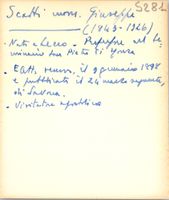 5281
Scatti mons. Giuseppe
(1843-1926)
- Nato a Lecco - Prefetto al Se-
minario San Pietro di
- Eletto vescovo, il 9 gennaio 1898
e pubblicato il 24 marzo seguente,
di Savona.
- Visitatore apostolico